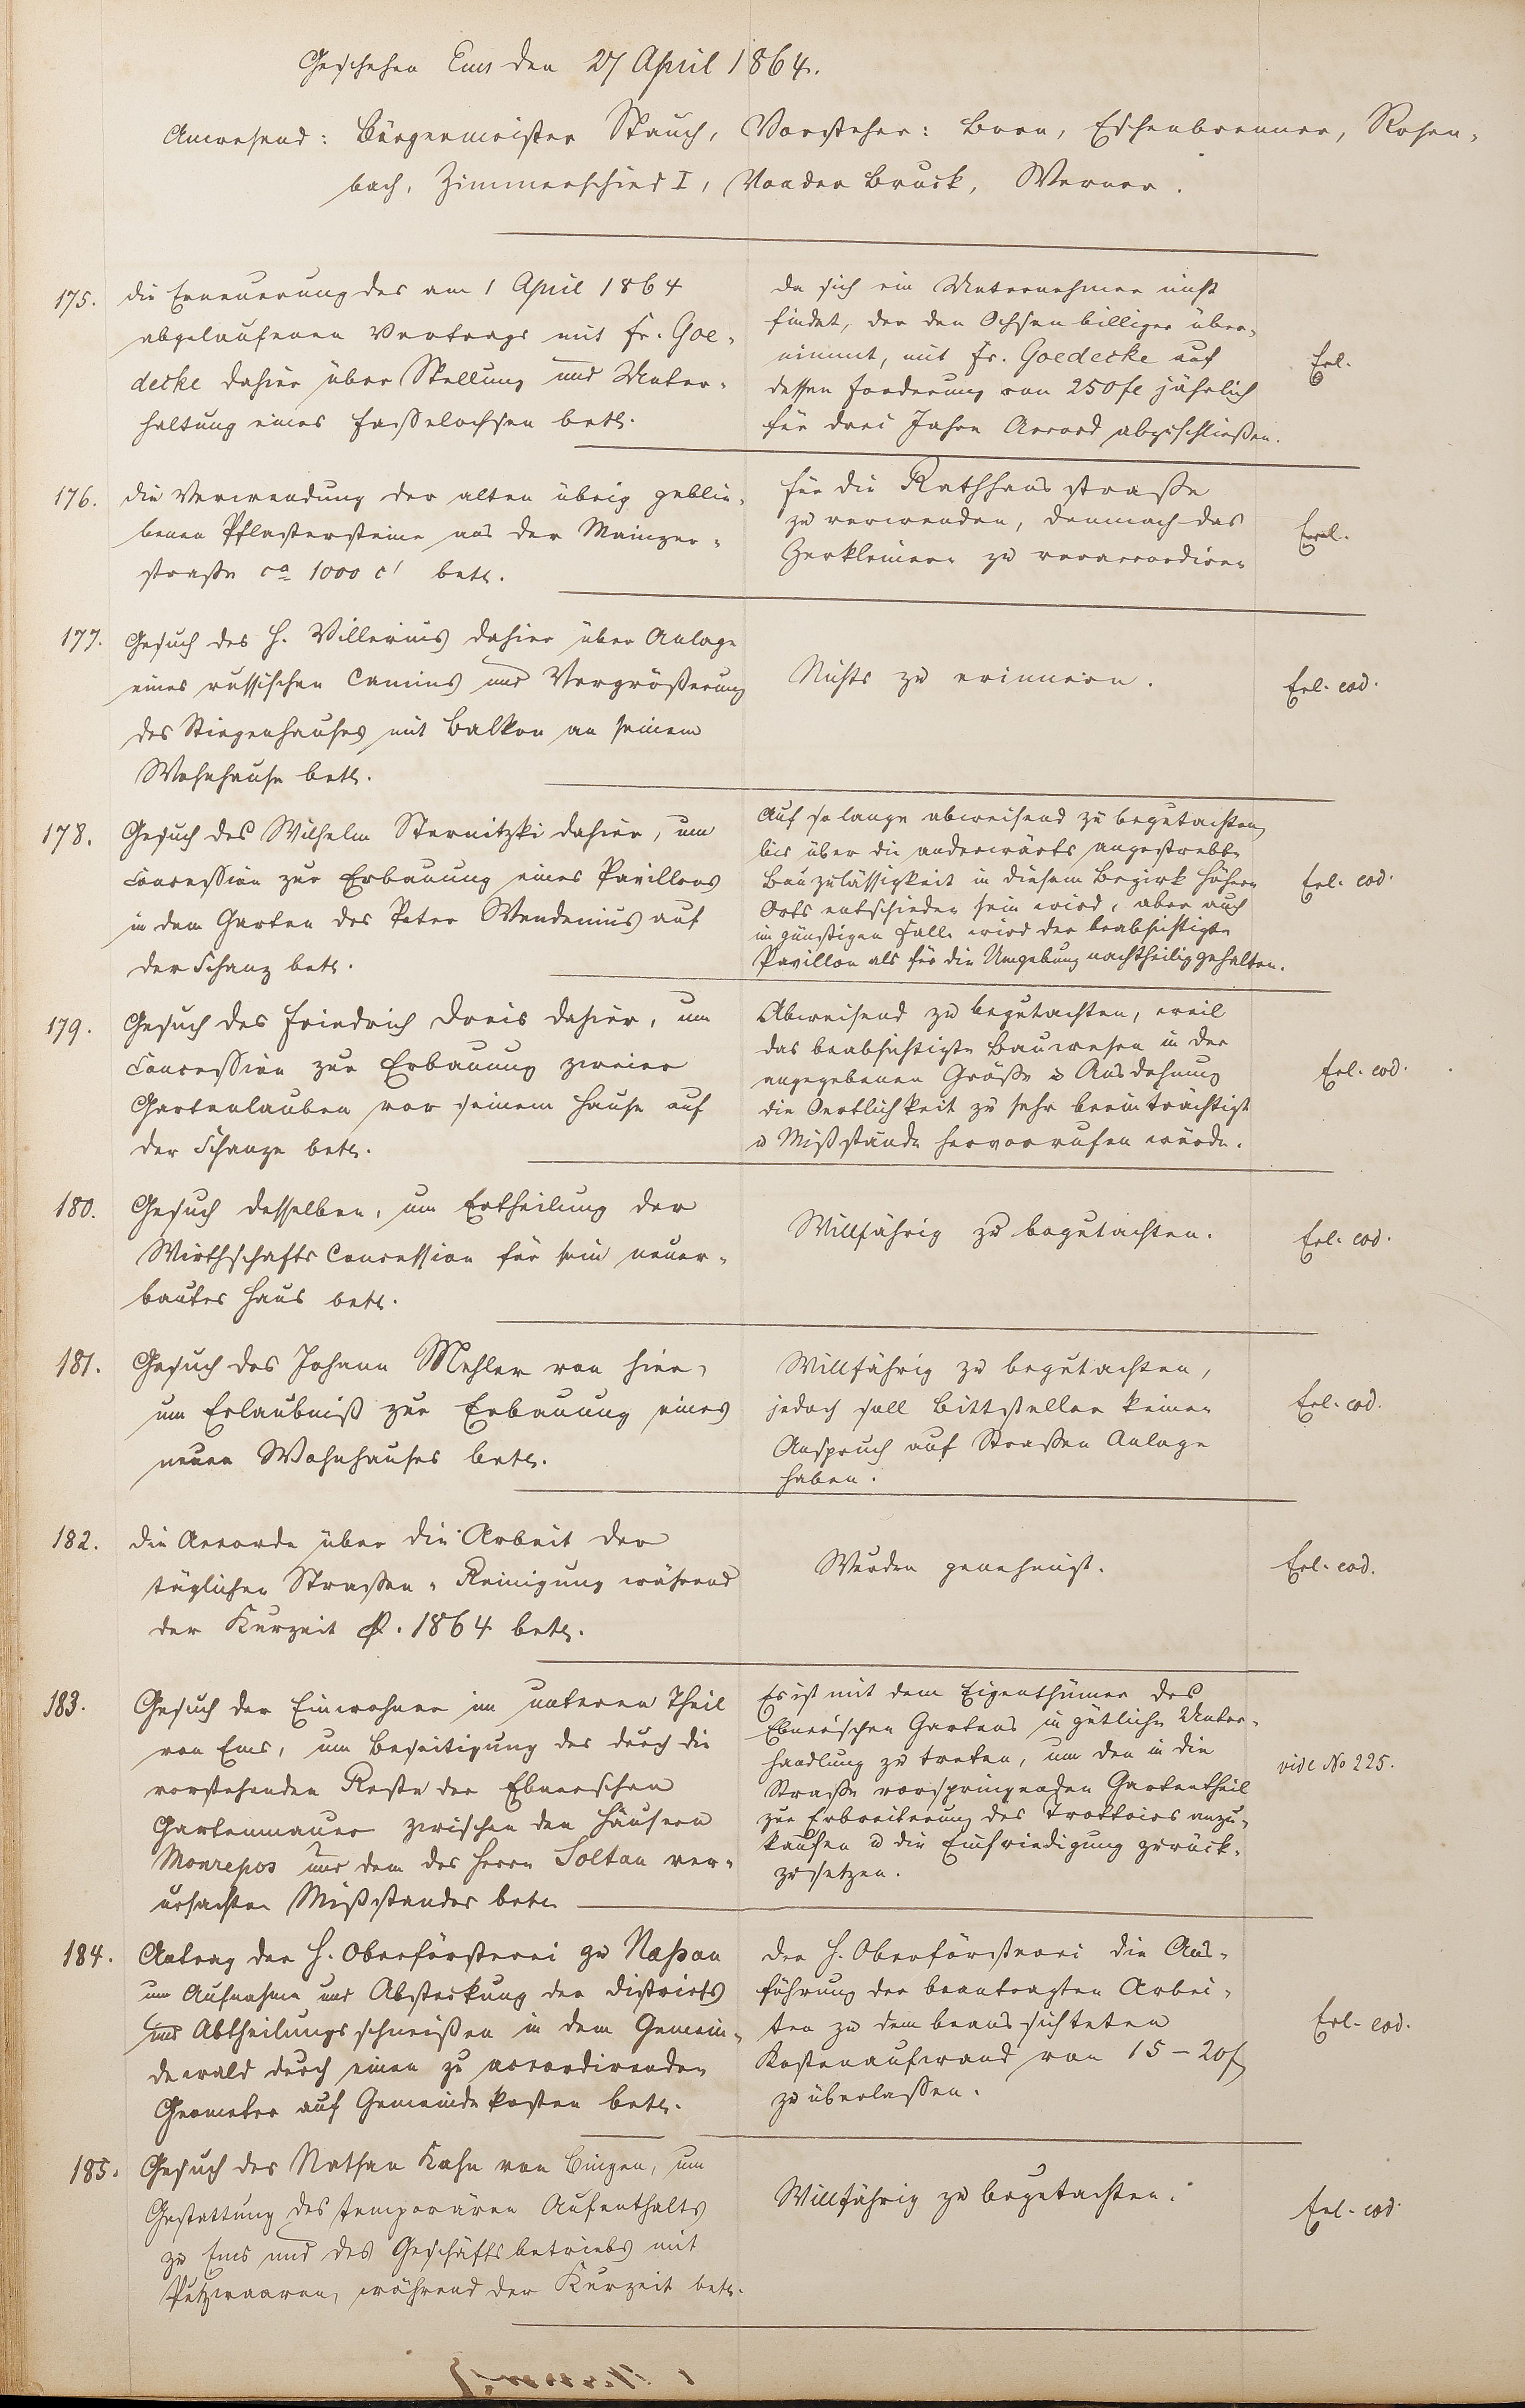 Geschehen Ems den 27 April 1864.
Anwesend: Bürgermeister Spauch, Vorsteher: Born, Eschenbrenner, Rosen-
bach, Zimmerschied I, Vonder Bruck, Werner.
175. die Erneuerung des am 1 April 1864
abgelaufenen Vertrags mit Fr. Goe-
decke dahier über Stellung und Unter-
haltung eines Fasselochsen betr.
da sich ein Unternehmer nicht
findet, der den Ochsen billiger über-
nimmt, mit Fr. Goedecke auf
dessen Forderung von 250 fl jährlich
für drei Jahre Accord abzuschließen.
Erl.
176. die Verwendung der alten übrig geblie-
benen Pflastersteine aus der Mainzer-
straße ca 1000 c' betr.
für die Rathhausstraße
zu verwenden, demnach das
Zerkleinern zu veraccordiren
Erl.
177. Gesuch des H. Villerius dahier über Anlage
eines russischen Camins und Vergrößerung
des Stiegenhauses mit Balkon an seinem
Wohnhause betr.
Nichts zu erinnern.
Erl. eod.
178. Gesuch des Wilhelm Sternitzki dahier, um
Concession zur Erbauung eines Pavillons
in dem Garten des Peter Wendenius auf
der Schanz betr.
Auf so lange abweisend zu begutachten
bis über die anderwärts angestrebte
Bauzulässigkeit in diesem Bezirk höhern
Orts entschieden sein wird, aber auch
im günstigen Falle wird der beabsichtigte
Pavillon als für die Umgebung nachtheilig gehalten.
Erl. eod.
179. Gesuch des Friedrich Dreis dahier, um
Concession zur Erbauung zweier
Gartenlauben vor seinem Hause auf
der Schanze betr.
Abweisend zu begutachten, weil
das beabsichtigte Bauwesen in der
angegebenen Größe u Ausdehnung
die Oertlichkeit zu sehr beeinträchtigt
u Mißstände hervorrufen würde.
Erl. eod.
180. Gesuch desselben, um Ertheilung der
Wirthschafts Concession für sein neuer-
bautes Haus betr.
Willfährig zu begutachten.
Erl. eod.
181. Gesuch des Johann Mehler von hier,
um Erlaubniß zur Erbauung eines
neuen Wohnhauses betr.
Willfährig zu begutachten,
jedoch soll Bittsteller keinen
Anspruch auf Straßen Anlage
haben.
Erl. eod.
182. die Accorde über die Arbeit der
täglichen Straßen-Reinigung während
der Kurzeit p. 1864 betr.
Wurden genehmigt.
Erl. eod.
183. Gesuch der Einwohner im unteren Theil
von Ems, um Beseitigung des durch die
vorstehenden Reste der Ebnerschen
Gartenmauer zwischen den Häusern
Monrepos und dem des Herrn Soltau ver-
ursachten Mißstandes betr.
Es ist mit dem Eigenthümer des
Ebner'schen Gartens in gütliche Unter-
handlung zu treten, um den in die
Straße vorspringenden Gartentheil
zur Erbreiterung des Trottoirs anzu-
kaufen u die Einfriedigung zurück-
zusetzen.
vide No 225.
184. Antrag der H. Oberförsterei zu Nassau
um Aufnahme und Absteckung der Districts
und Abtheilungsschneißen in dem Gemein-
dewald durch einen zu accordirenden
Geometer auf Gemeindekosten betr.
der H. Oberförsterei die Aus-
führung der beantragten Arbei-
ten zu dem beaussichteten
Kostenaufwand von 15 – 20 f
zu überlassen.
Erl. eod.
185. Gesuch des Nathan Kahn von Bingen, um
Gestattung des temporären Aufenthalts
zu Ems und des Geschäftsbetriebs mit
Putzwaaren, während der Kurzeit betr.
Willfährig zu begutachten.
Erl. eod